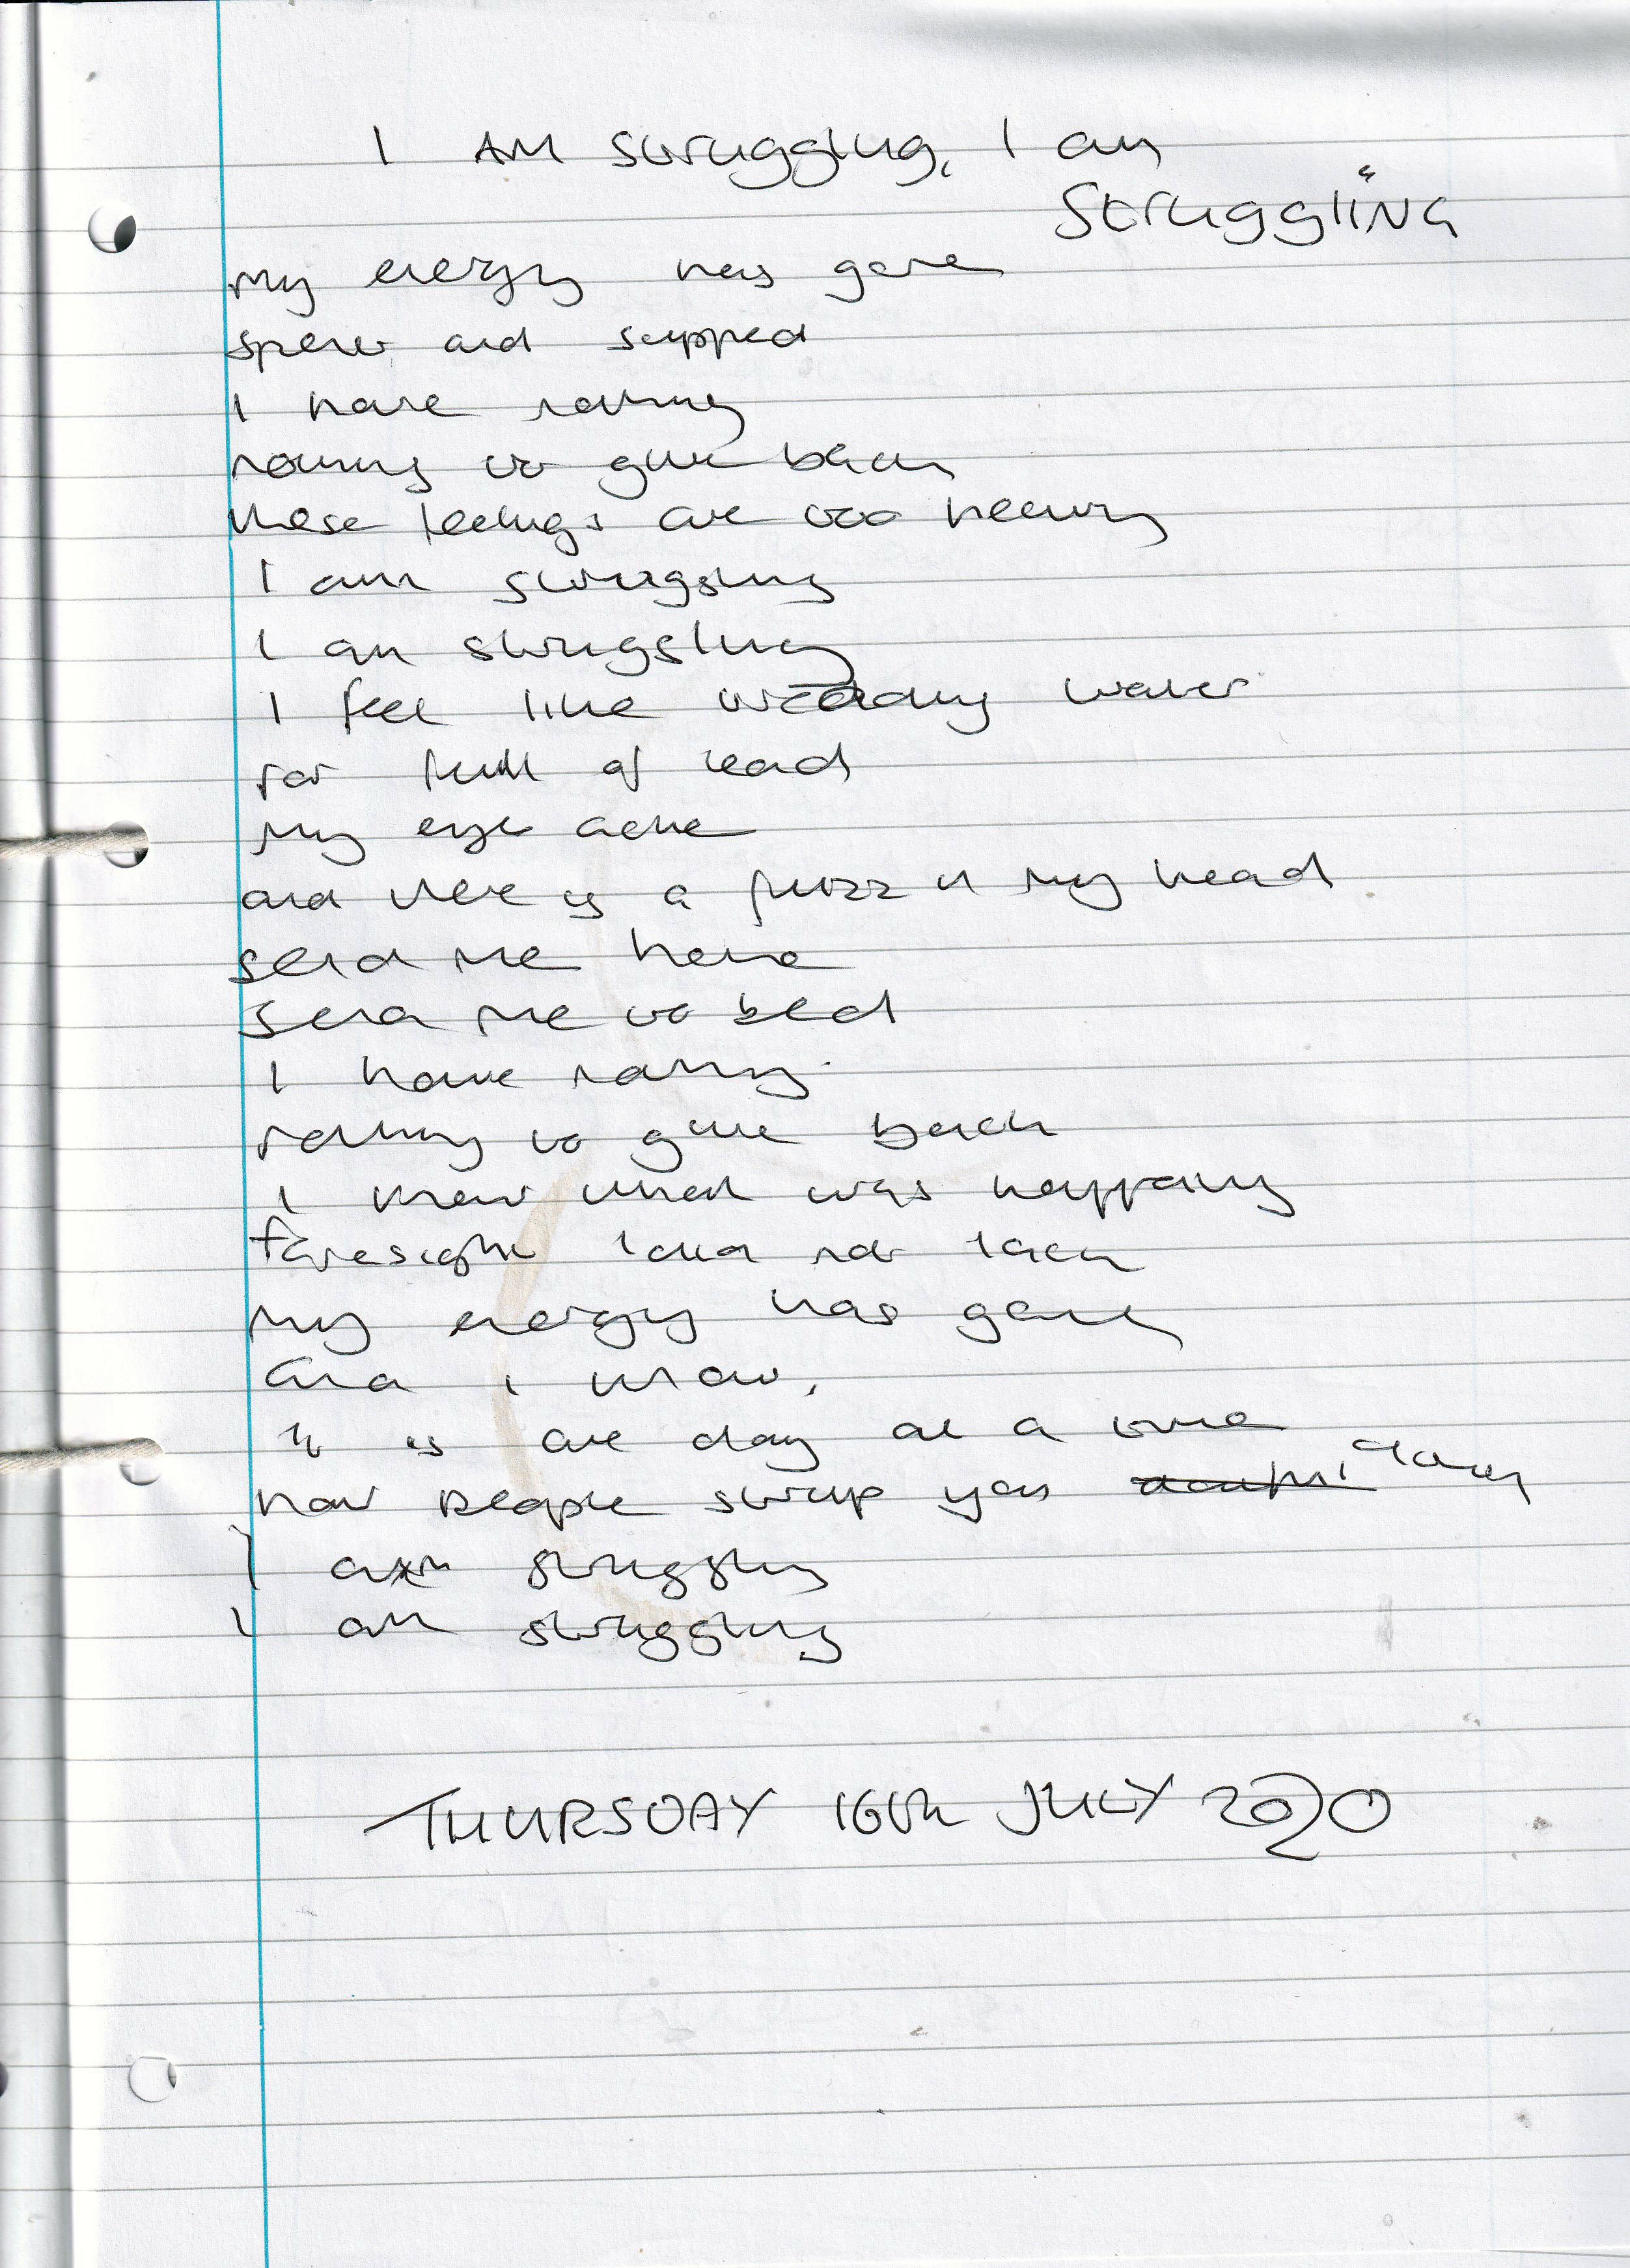 I AM struggling, I am
Struggling
my energy has gone
spent and stopped
I have nothing
nothing to give back
these feelings are too heavy
I am struggling
I am struggling
I feel like treading water
full of lead
my eyes ache
and there is a fuzz in my head
send me home
send me to bed
I have nothing
nothing to give back
I knew what was happening
foresight I did not lack
my energy has gone
and I know,
It is one day at a time
how people strip you down
I am struggling
I am struggling
THURSDAY 16th JULY 2020